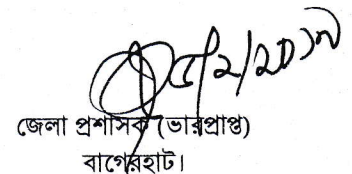 জেলা প্রশাসক (ভারপ্রাপ্ত)
বাগেরহাট।